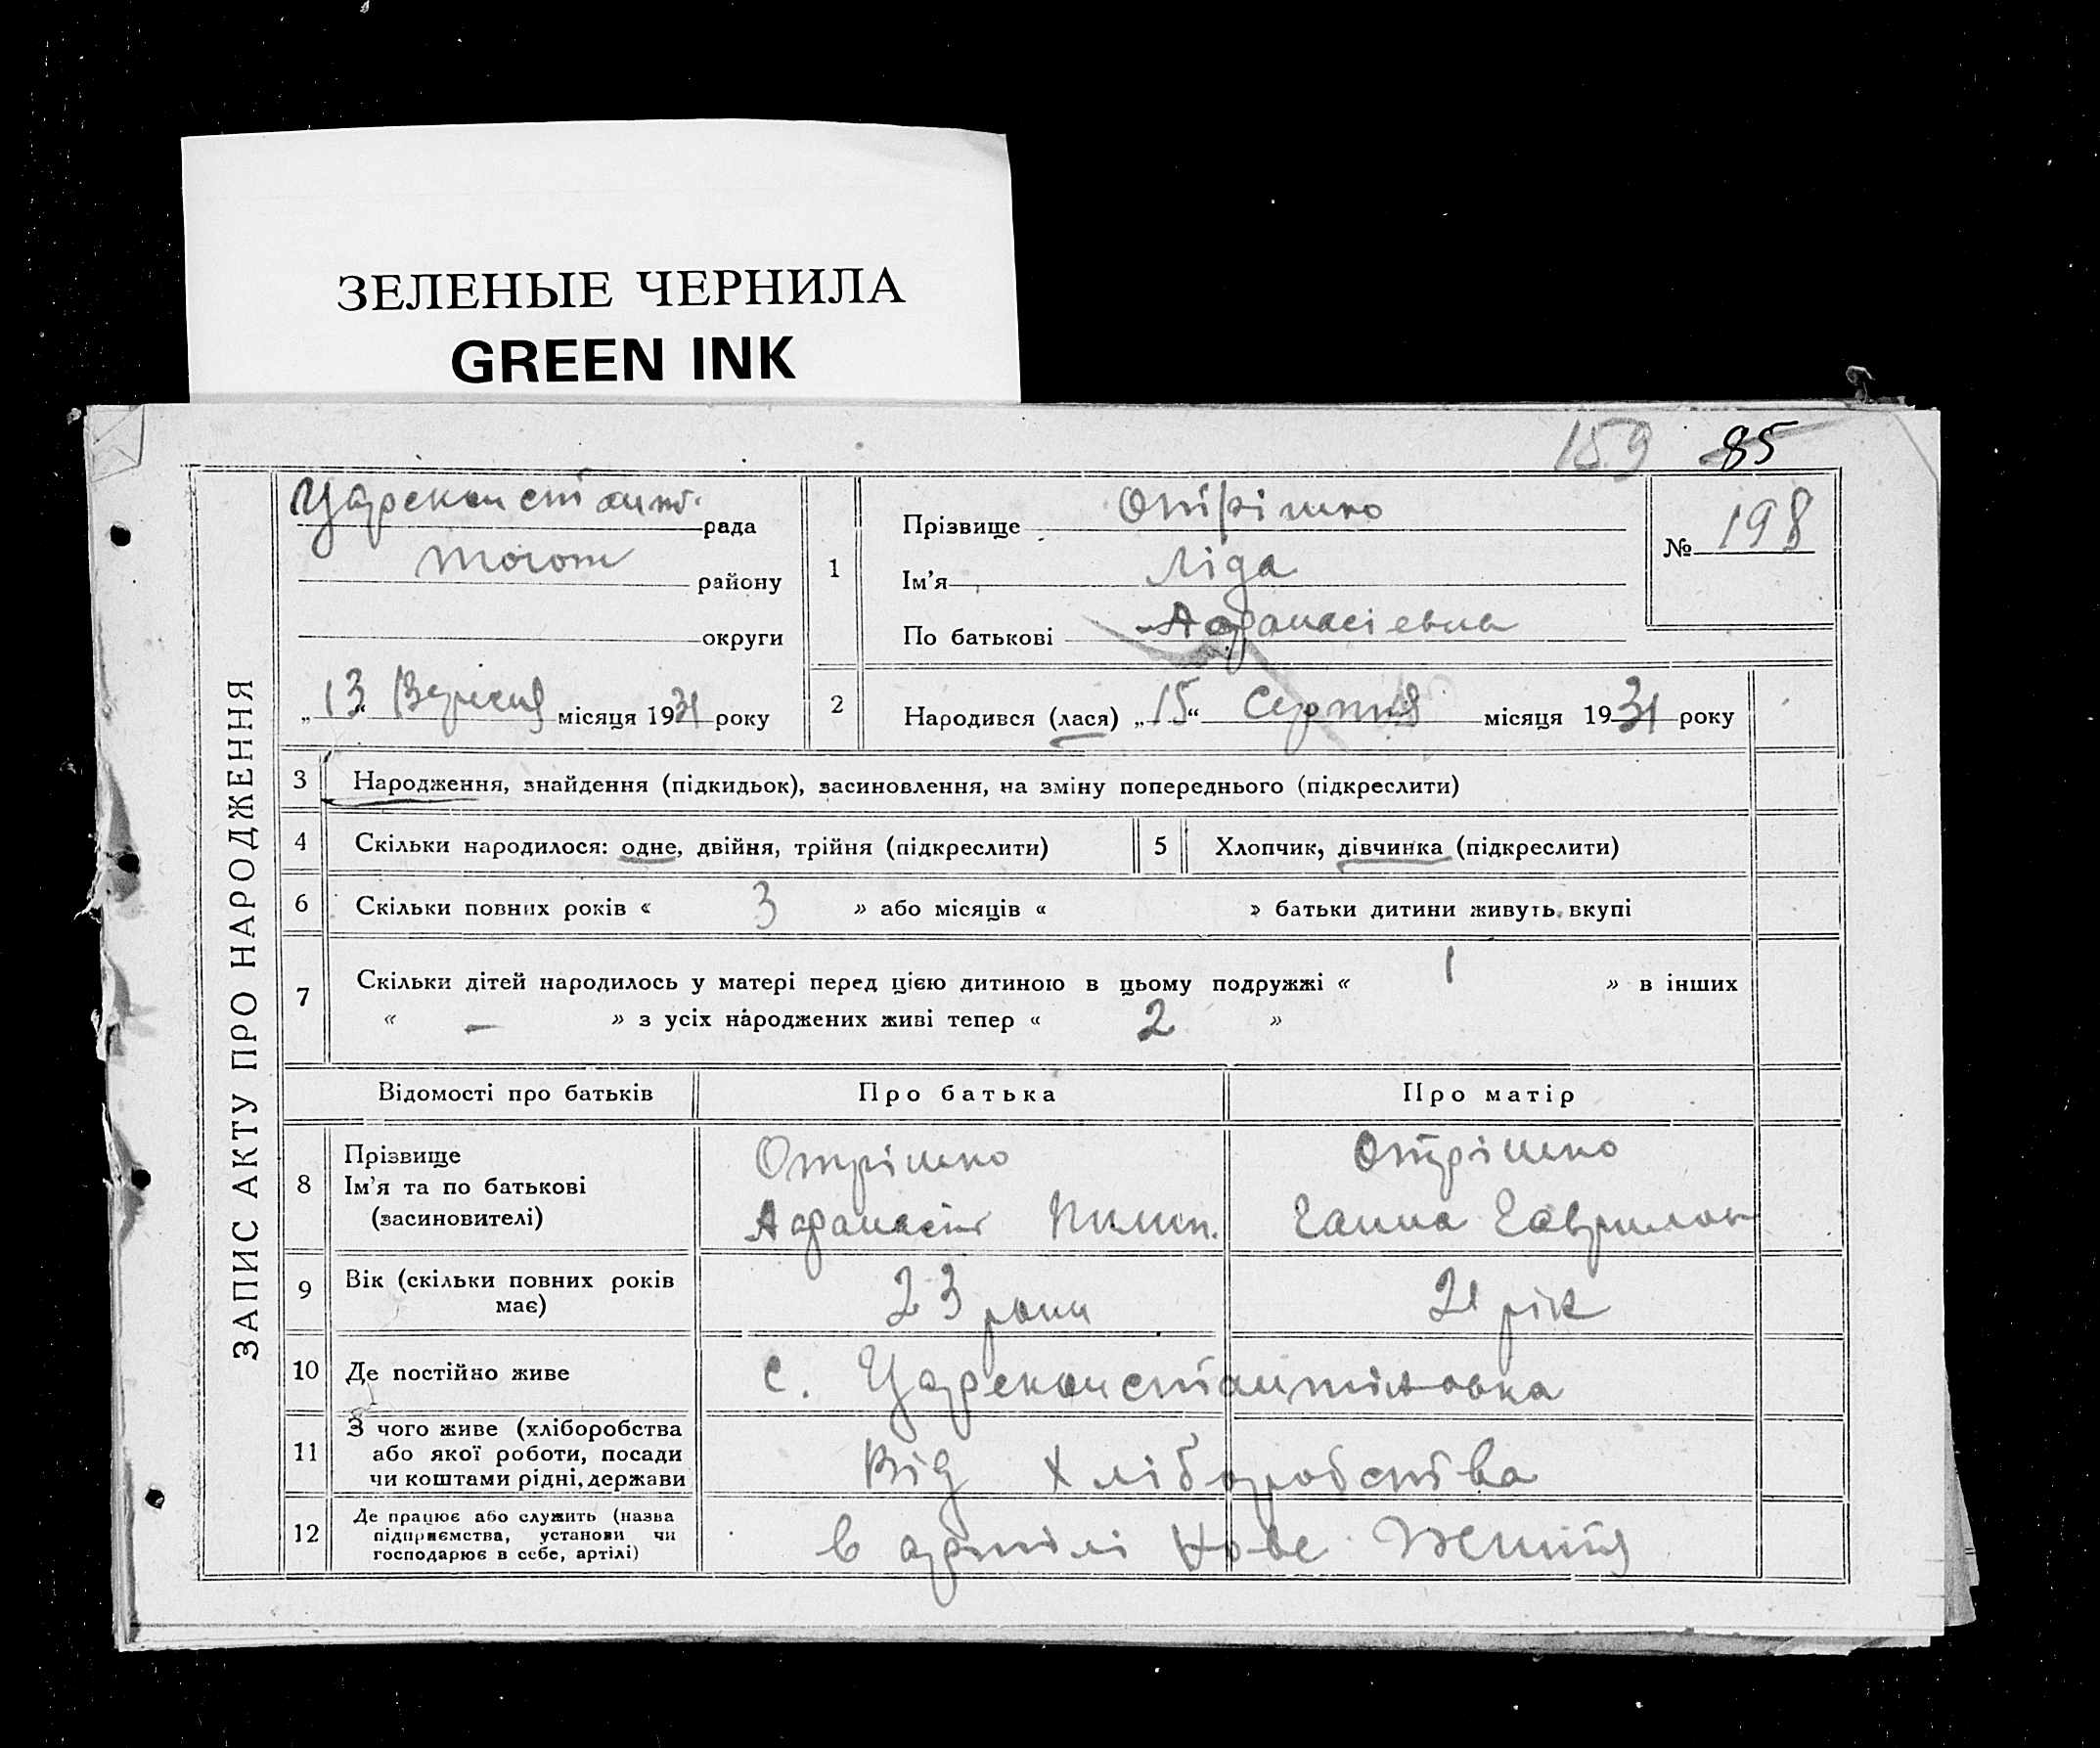 ЗЕЛЕНЫЕ ЧЕРНИЛА
GREEN INK
159 85
ЗАПИС АКТУ ПРО НАРОДЖЕННЯ
Цареконстант. рада
тогож району
округи
„13“ Вересня місяця 1931 року
1
Прізвище Отрішко
Ім'я Ліда
По батькові Афанасієвна
№ 198
2
Народився (лася) „15“ Серпня місяця 1931 року
3 Народження, знайдення (підкидьок), засиновлення, на зміну попереднього (підкреслити)
4 Скільки народилося: одне, двійня, трійня (підкреслити) 5 Хлопчик, дівчинка (підкреслити)
6 Скільки повних років « 3 » або місяців « » батьки дитини живуть вкупі
7 Скільки дітей народилось у матері перед цією дитиною в цьому подружжі « 1 » в інших
« — » з усіх народжених живі тепер « 2 »
Відомості про батьків Про батька Про матір
8 Прізвище
Ім'я та по батькові
(засиновителі)
Отрішко
Афанасій Пилип.
Отрішко
Ганна Гаврилов
9 Вік (скільки повних років
має)
23 роки 21 рік
10 Де постійно живе с. Цареконстантіновка
11 З чого живе (хліборобства
або якої роботи, посади
чи коштами рідні, держави
Від хліборобства
12 Де працює або служить (назва
підприємства, установи чи
господарює в себе, артілі)
в артілі Нове Життя